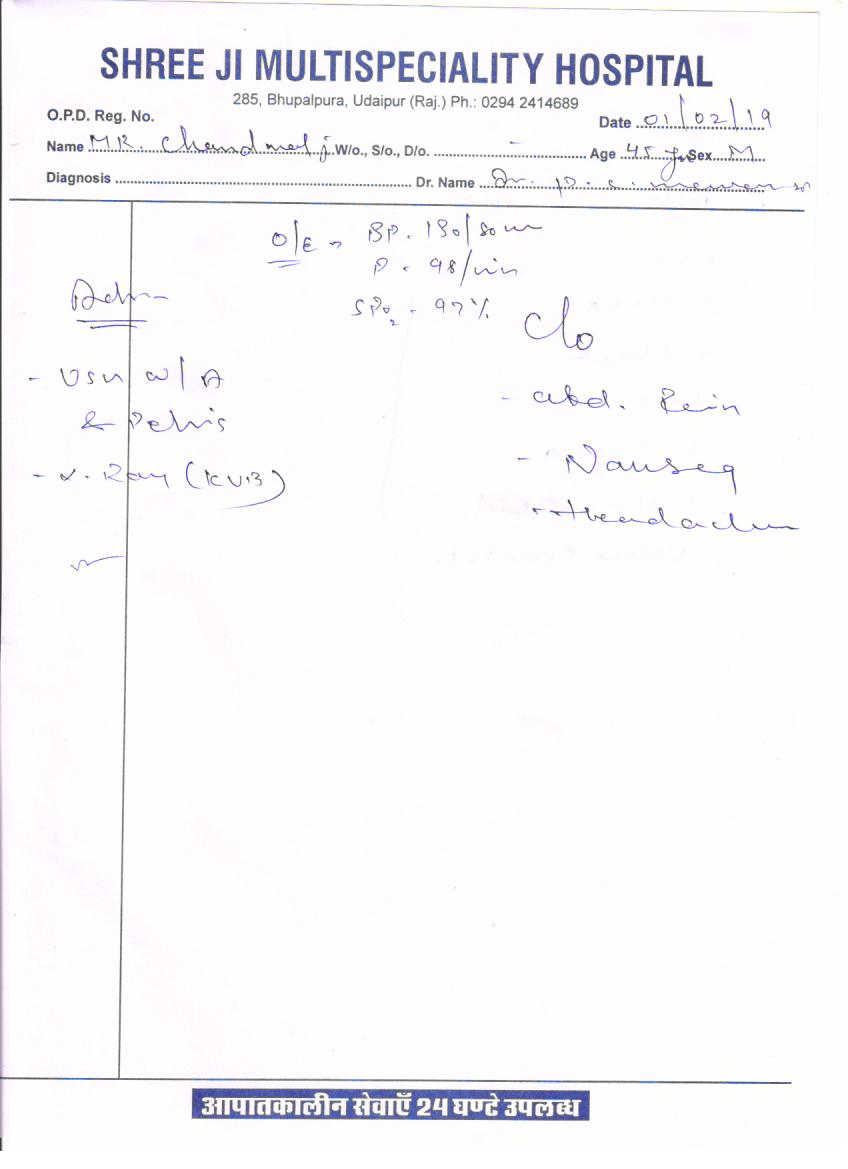 SHREE JI MULTISPECIALITY HOSPITAL
285, Bhupalpura, Udaipur (Raj.) Ph.: 0294 2414689
O.P.D. Reg. No.
Date 01/02/19
Name MR. Chandmal ji W/o., S/o., D/o. - Age 45 yr Sex M
Diagnosis Dr. Name Dr. P. S.
O/E → BP. 130/80
P - 98/min
SPO2 - 97%
Adv
C/o
- USG W/A
& Pelvis
- X-Ray (KUB)
- abd. Pain
- Nausea
- Headache
आपातकालीन सेवाएँ 24 घण्टे उपलब्ध